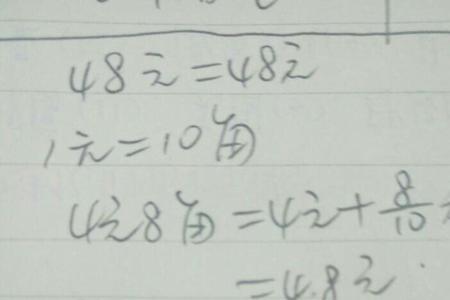 48元=48元
1元=10角
4元8角=4元+8/10元
=4.8元